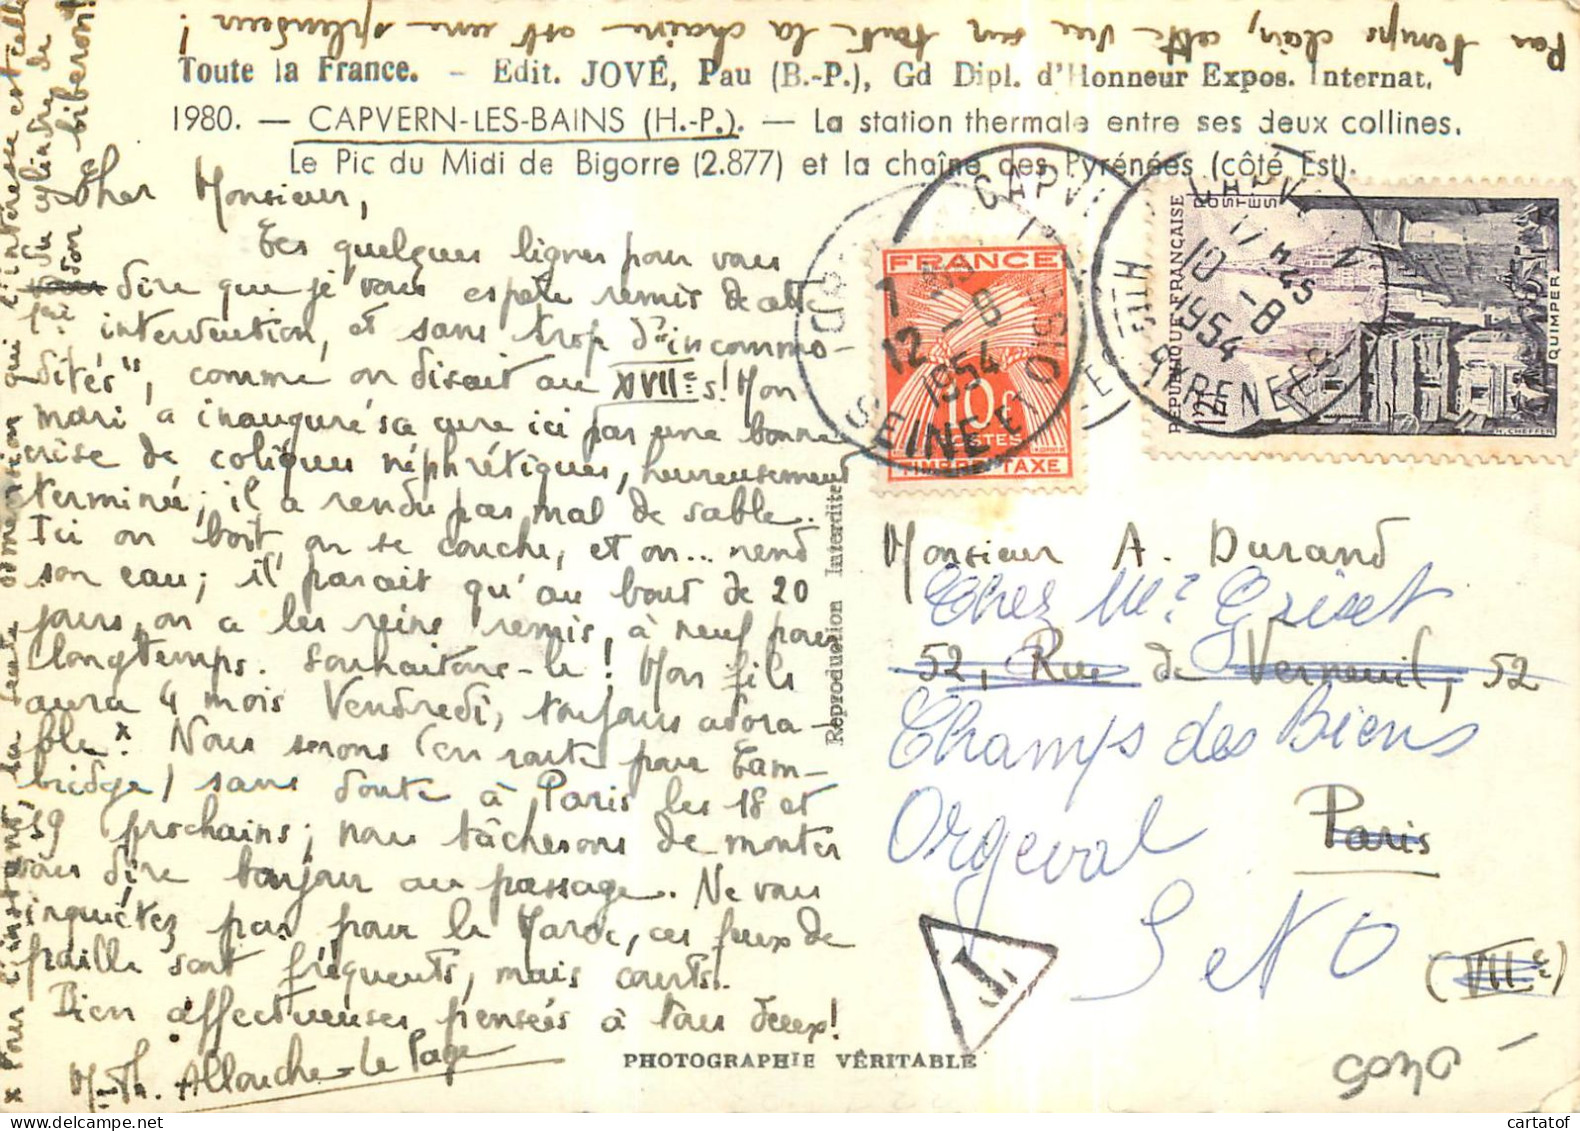 Par temps clair, cette vue sur toute la chaîne est une splendeur !
Toute la France. - Edit. JOVÉ, Pau (B.-P.), Gd Dipl. d'Honneur Expos. Internat.
1980. — CAPVERN-LES-BAINS (H.-P.). — La station thermale entre ses deux collines.
Le Pic du Midi de Bigorre (2.877) et la chaîne des Pyrénées (côté Est).
Cher Monsieur,
Ces quelques lignes pour vous
dire que je vous espère remis de cette
intervention, et sans trop d'"incommo-
dités", comme on disait au XVIIe s! Mon
mari a inauguré sa cure ici par une bonne
crise de coliques néphrétiques, heureusement
terminée; il a rendu pas mal de sable.
Ici on boit, on se couche, et on... rend
son eau; il paraît qu'au bout de 20
jours, on a les reins remis à neuf pour
longtemps. Souhaitons-le! Mon fils
aura 4 mois Vendredi, toujours adora-
ble x. Nous serons (en route pour Cam-
bridge) sans doute à Paris les 18 et
19 prochains; nous tâcherons de monter
vous dire bonjour au passage. Ne vous
inquiétez pas pour le Maroc, ces feux de
paille sont fréquents, mais courts.
Bien affectueuses pensées à tous deux!
M. Th. Allouche-Le Page
x Pour l'instant, la seule dimension qui l'intéresse est celle
du cylindre de
son biberon!
Reproduction Interdite
PHOTOGRAPHIE VÉRITABLE
FRANCE
10F
POSTES
TIMBRE TAXE
7 30
12 - 8
1954
SEINE ET OISE
CAPVERN
HTES PYRENEES
17 H 45
10 - 8
1954
REPUBLIQUE FRANÇAISE
POSTES
12F
QUIMPER
H. CHEFFER
Monsieur A. Durand
Chez Mr Griset
52, Rue de Verneuil, 52
Champs des Biens
Orgeval
Paris
S et O
(VIIe)
T
cartatof